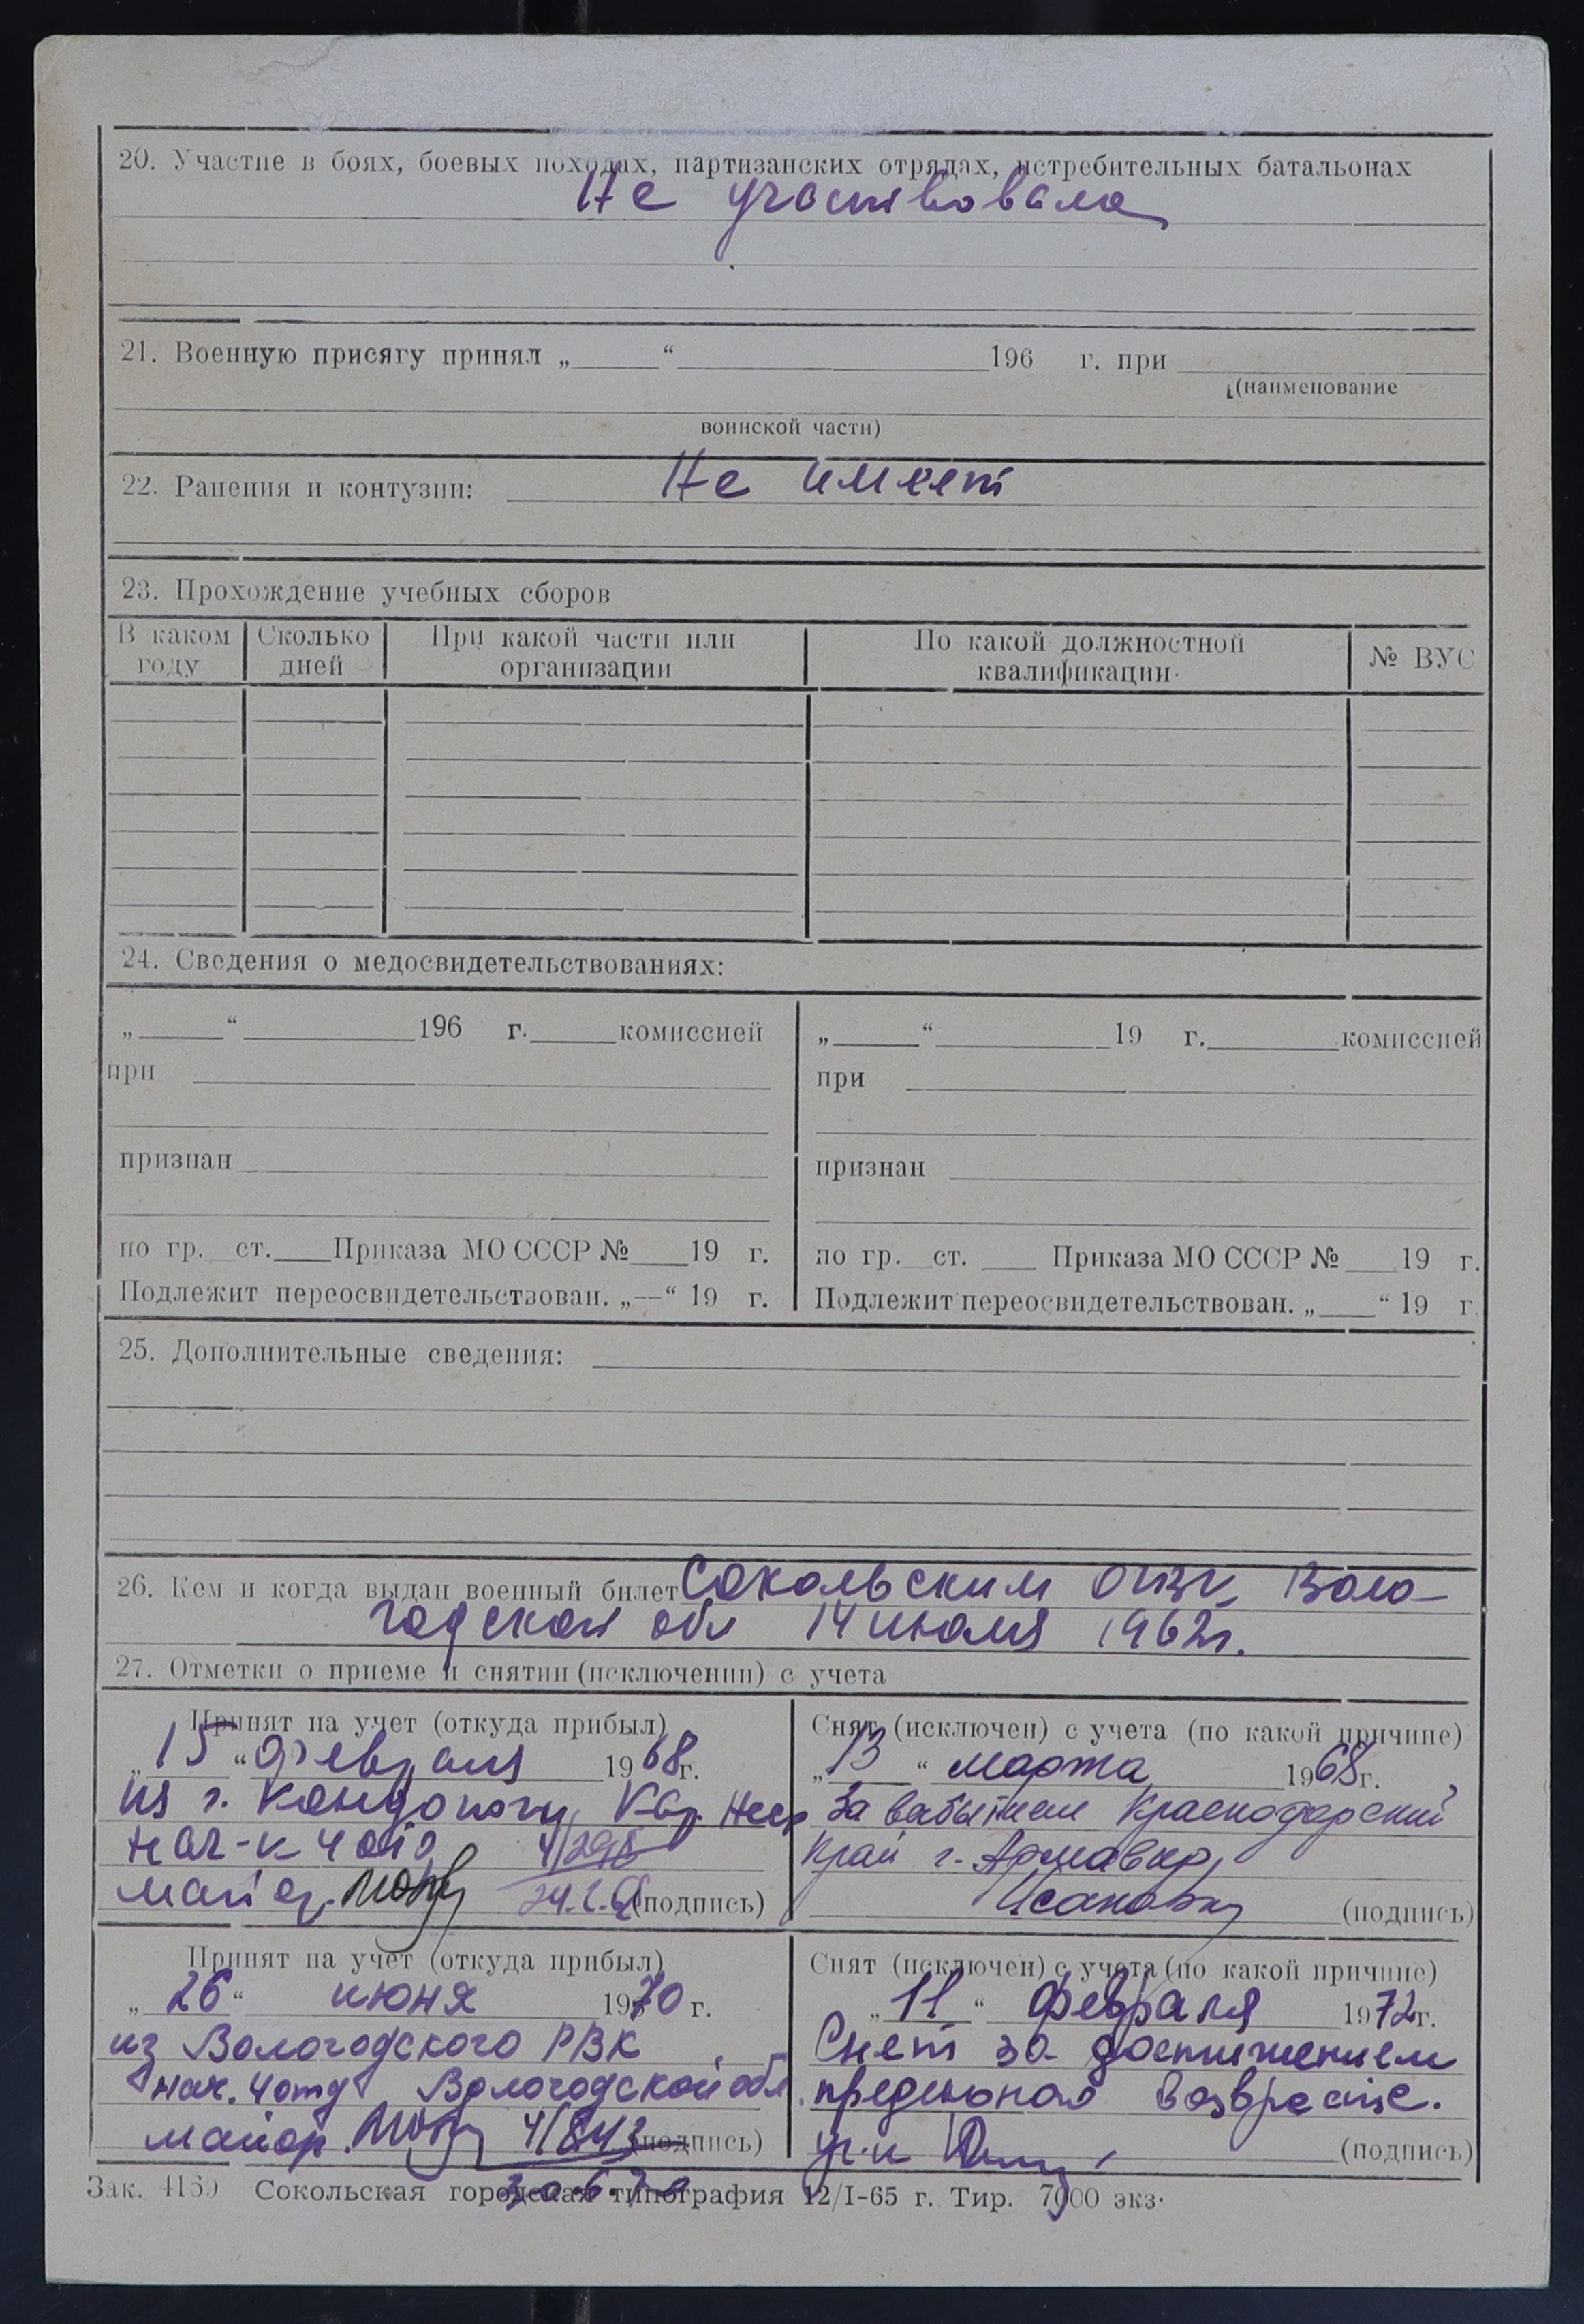 20. Участие в боях, боевых походах, партизанских отрядах, истребительных батальонах
Не участвовала
21. Военную присягу принял „ “ 196 г. при
(наименование
воинской части)
22. Ранения и контузии: Не имеет
23. Прохождение учебных сборов
В каком году | Сколько дней | При какой части или организации | По какой должностной квалификации. | № ВУС
24. Сведения о медосвидетельствованиях:
„ “ 196 г. комиссией
при
признан
по гр. ст. Приказа МО СССР № 19 г.
Подлежит переосвидетельствован. „—“ 19 г.
„ “ 19 г. комиссией
при
признан
по гр. ст. Приказа МО СССР № 19 г.
Подлежит переосвидетельствован. „ “ 19 г.
25. Дополнительные сведения:
26. Кем и когда выдан военный билет Сокольским ОГВК, Воло-
годской обл 14 июля 1962г.
27. Отметки о приеме и снятии (исключении) с учета
Принят на учет (откуда прибыл)
„15“ февраля 1968г.
из г. Кондопоги, Кар.
нач-к 4 отд
майор (подпись)
Снят (исключен) с учета (по какой причине)
„13“ марта 1968г.
За выбытием Краснодарский
край г. Армавир
(подпись)
Принят на учет (откуда прибыл)
„26“ июня 1970 г.
из Вологодского РВК,
нач. 4 отд Вологодской обл.
майор 4/843 (подпись)
30.6.70
Снят (исключен) с учета (по какой причине)
„11“ февраля 1972г.
Снят за достижением
предельного возраста.
(подпись)
Зак. 4160 Сокольская городская типография 12/I-65 г. Тир. 7000 экз.